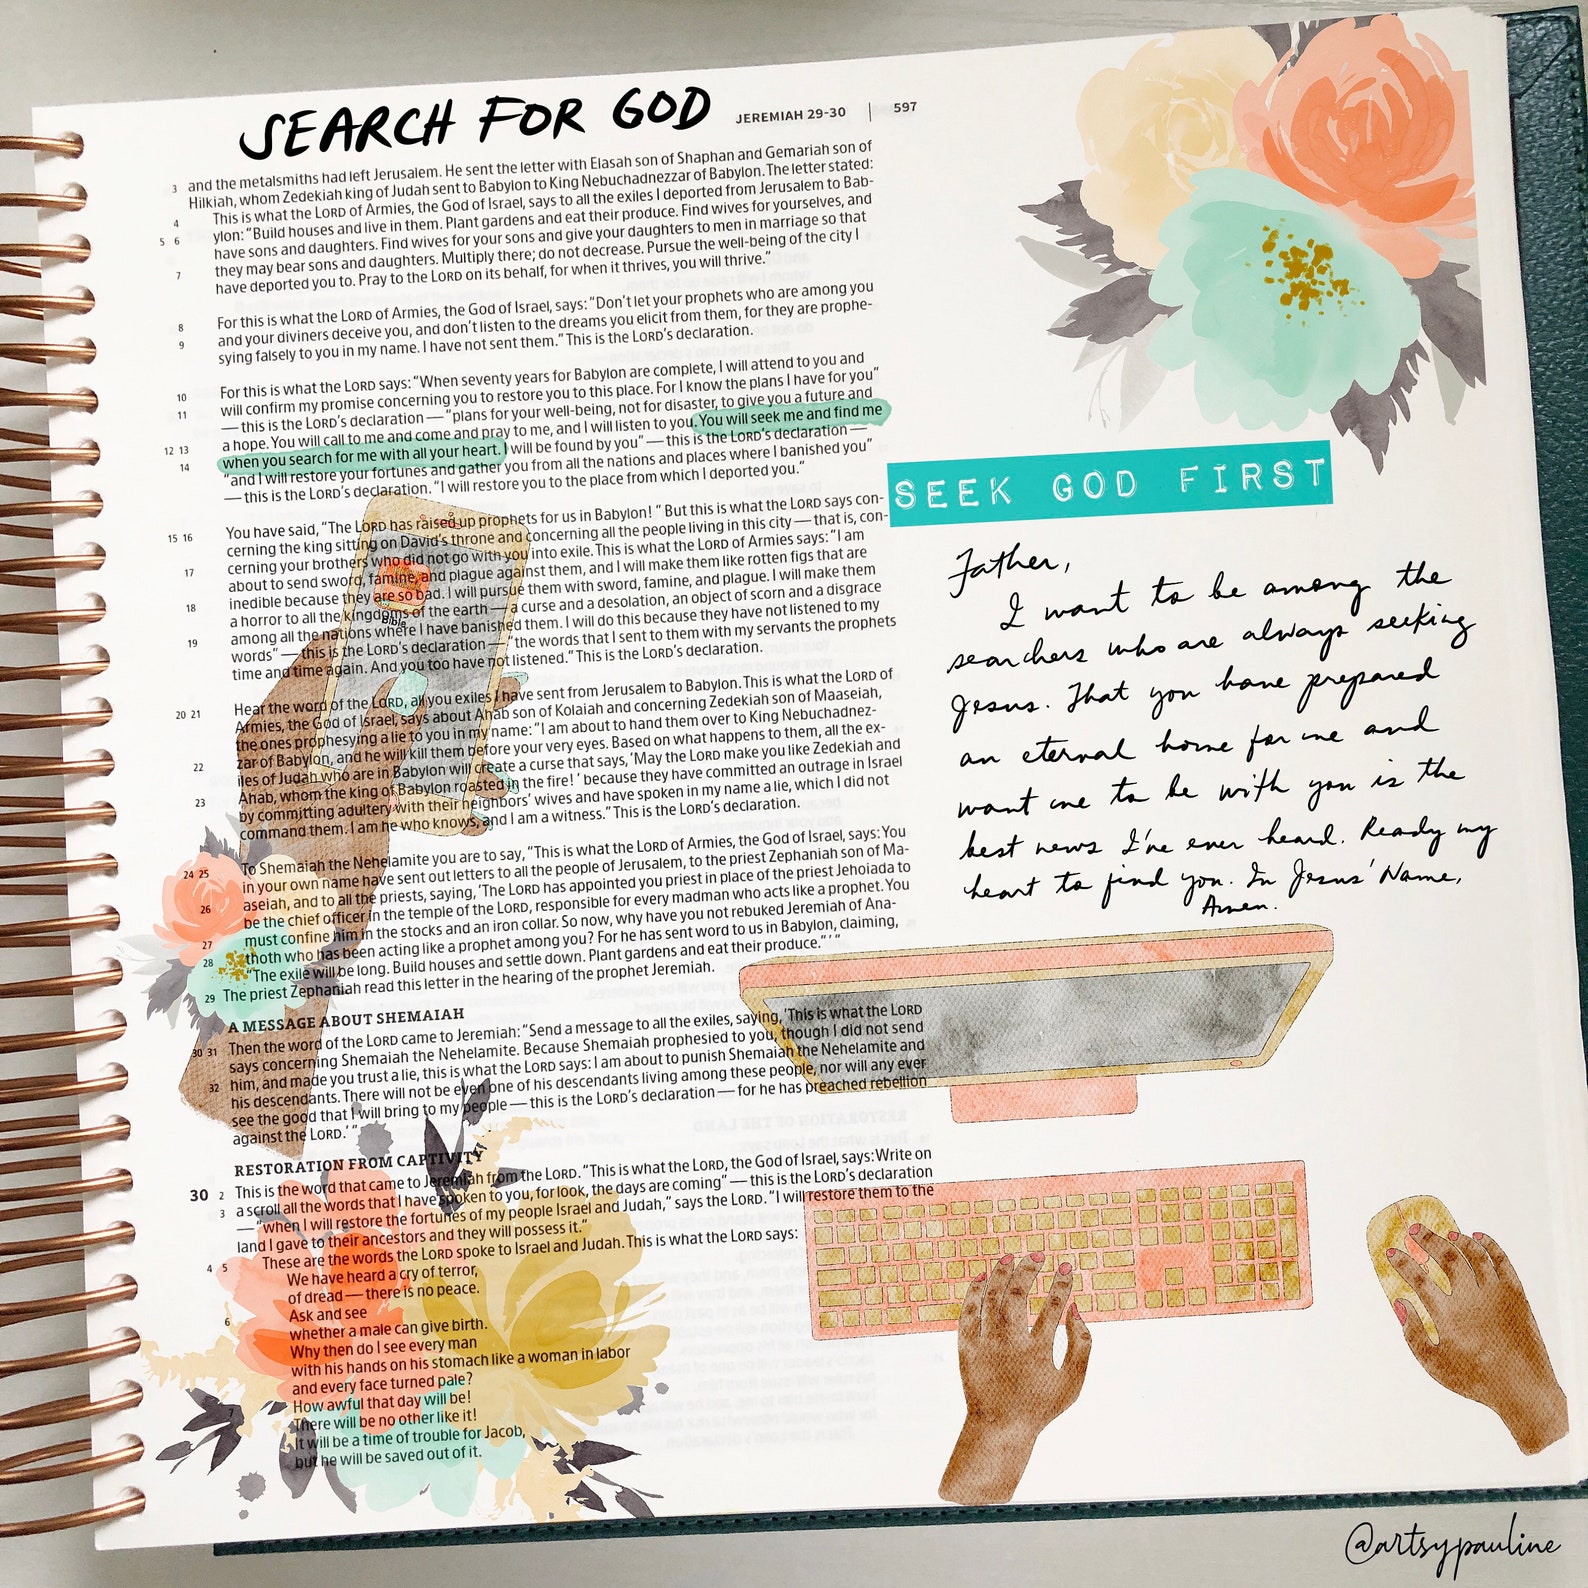 SEARCH FOR GOD
JEREMIAH 29-30 | 597
3 and the metalsmiths had left Jerusalem. He sent the letter with Elasah son of Shaphan and Gemariah son of
Hilkiah, whom Zedekiah king of Judah sent to Babylon to King Nebuchadnezzar of Babylon. The letter stated:
4 This is what the LORD of Armies, the God of Israel, says to all the exiles I deported from Jerusalem to Bab-
5 6 ylon: “Build houses and live in them. Plant gardens and eat their produce. Find wives for yourselves, and
have sons and daughters. Find wives for your sons and give your daughters to men in marriage so that
7 they may bear sons and daughters. Multiply there; do not decrease. Pursue the well-being of the city I
have deported you to. Pray to the LORD on its behalf, for when it thrives, you will thrive.”
8 For this is what the LORD of Armies, the God of Israel, says: “Don’t let your prophets who are among you
9 and your diviners deceive you, and don’t listen to the dreams you elicit from them, for they are prophe-
sying falsely to you in my name. I have not sent them.” This is the LORD’s declaration.
10 For this is what the LORD says: “When seventy years for Babylon are complete, I will attend to you and
11 will confirm my promise concerning you to restore you to this place. For I know the plans I have for you”
— this is the LORD’s declaration — “plans for your well-being, not for disaster, to give you a future and
12 13 a hope. You will call to me and come and pray to me, and I will listen to you. You will seek me and find me
14 when you search for me with all your heart. I will be found by you” — this is the LORD’s declaration —
“and I will restore your fortunes and gather you from all the nations and places where I banished you”
— this is the LORD’s declaration. “I will restore you to the place from which I deported you.”
15 16 You have said, “The LORD has raised up prophets for us in Babylon! ” But this is what the LORD says con-
cerning the king sitting on David’s throne and concerning all the people living in this city — that is, con-
17 cerning your brothers who did not go with you into exile. This is what the LORD of Armies says: “I am
about to send sword, famine, and plague against them, and I will make them like rotten figs that are
18 inedible because they are so bad. I will pursue them with sword, famine, and plague. I will make them
a horror to all the kingdoms of the earth — a curse and a desolation, an object of scorn and a disgrace
19 among all the nations where I have banished them. I will do this because they have not listened to my
words” — this is the LORD’s declaration — “the words that I sent to them with my servants the prophets
time and time again. And you too have not listened.” This is the LORD’s declaration.
Bible
20 21 Hear the word of the LORD, all you exiles I have sent from Jerusalem to Babylon. This is what the LORD of
Armies, the God of Israel, says about Ahab son of Kolaiah and concerning Zedekiah son of Maaseiah,
the ones prophesying a lie to you in my name: “I am about to hand them over to King Nebuchadnez-
22 zar of Babylon, and he will kill them before your very eyes. Based on what happens to them, all the ex-
iles of Judah who are in Babylon will create a curse that says, ‘May the LORD make you like Zedekiah and
23 Ahab, whom the king of Babylon roasted in the fire! ’ because they have committed an outrage in Israel
by committing adultery with their neighbors’ wives and have spoken in my name a lie, which I did not
command them. I am he who knows, and I am a witness.” This is the LORD’s declaration.
24 25 To Shemaiah the Nehelamite you are to say, “This is what the LORD of Armies, the God of Israel, says: You
in your own name have sent out letters to all the people of Jerusalem, to the priest Zephaniah son of Ma-
26 aseiah, and to all the priests, saying, ‘The LORD has appointed you priest in place of the priest Jehoiada to
be the chief officer in the temple of the LORD, responsible for every madman who acts like a prophet. You
27 must confine him in the stocks and an iron collar. So now, why have you not rebuked Jeremiah of Ana-
28 thoth who has been acting like a prophet among you? For he has sent word to us in Babylon, claiming,
“The exile will be long. Build houses and settle down. Plant gardens and eat their produce.” ’ ”
29 The priest Zephaniah read this letter in the hearing of the prophet Jeremiah.
A MESSAGE ABOUT SHEMAIAH
30 31 Then the word of the LORD came to Jeremiah: “Send a message to all the exiles, saying, ‘This is what the LORD
says concerning Shemaiah the Nehelamite. Because Shemaiah prophesied to you, though I did not send
32 him, and made you trust a lie, this is what the LORD says: I am about to punish Shemaiah the Nehelamite and
his descendants. There will not be even one of his descendants living among these people, nor will any ever
see the good that I will bring to my people — this is the LORD’s declaration — for he has preached rebellion
against the LORD.’ ”
RESTORATION FROM CAPTIVITY
30 2 This is the word that came to Jeremiah from the LORD. “This is what the LORD, the God of Israel, says: Write on
3 a scroll all the words that I have spoken to you, for look, the days are coming” — this is the LORD’s declaration
— “when I will restore the fortunes of my people Israel and Judah,” says the LORD. “I will restore them to the
land I gave to their ancestors and they will possess it.”
4 5 These are the words the LORD spoke to Israel and Judah. This is what the LORD says:
We have heard a cry of terror,
of dread — there is no peace.
6 Ask and see
whether a male can give birth.
Why then do I see every man
with his hands on his stomach like a woman in labor
and every face turned pale?
7 How awful that day will be!
There will be no other like it!
It will be a time of trouble for Jacob,
but he will be saved out of it.
SEEK GOD FIRST
Father,
I want to be among the
searchers who are always seeking
Jesus. That you have prepared
an eternal home for me and
want me to be with you is the
best news I've ever heard. Ready my
heart to find you. In Jesus' Name,
Amen.
@artsypauline